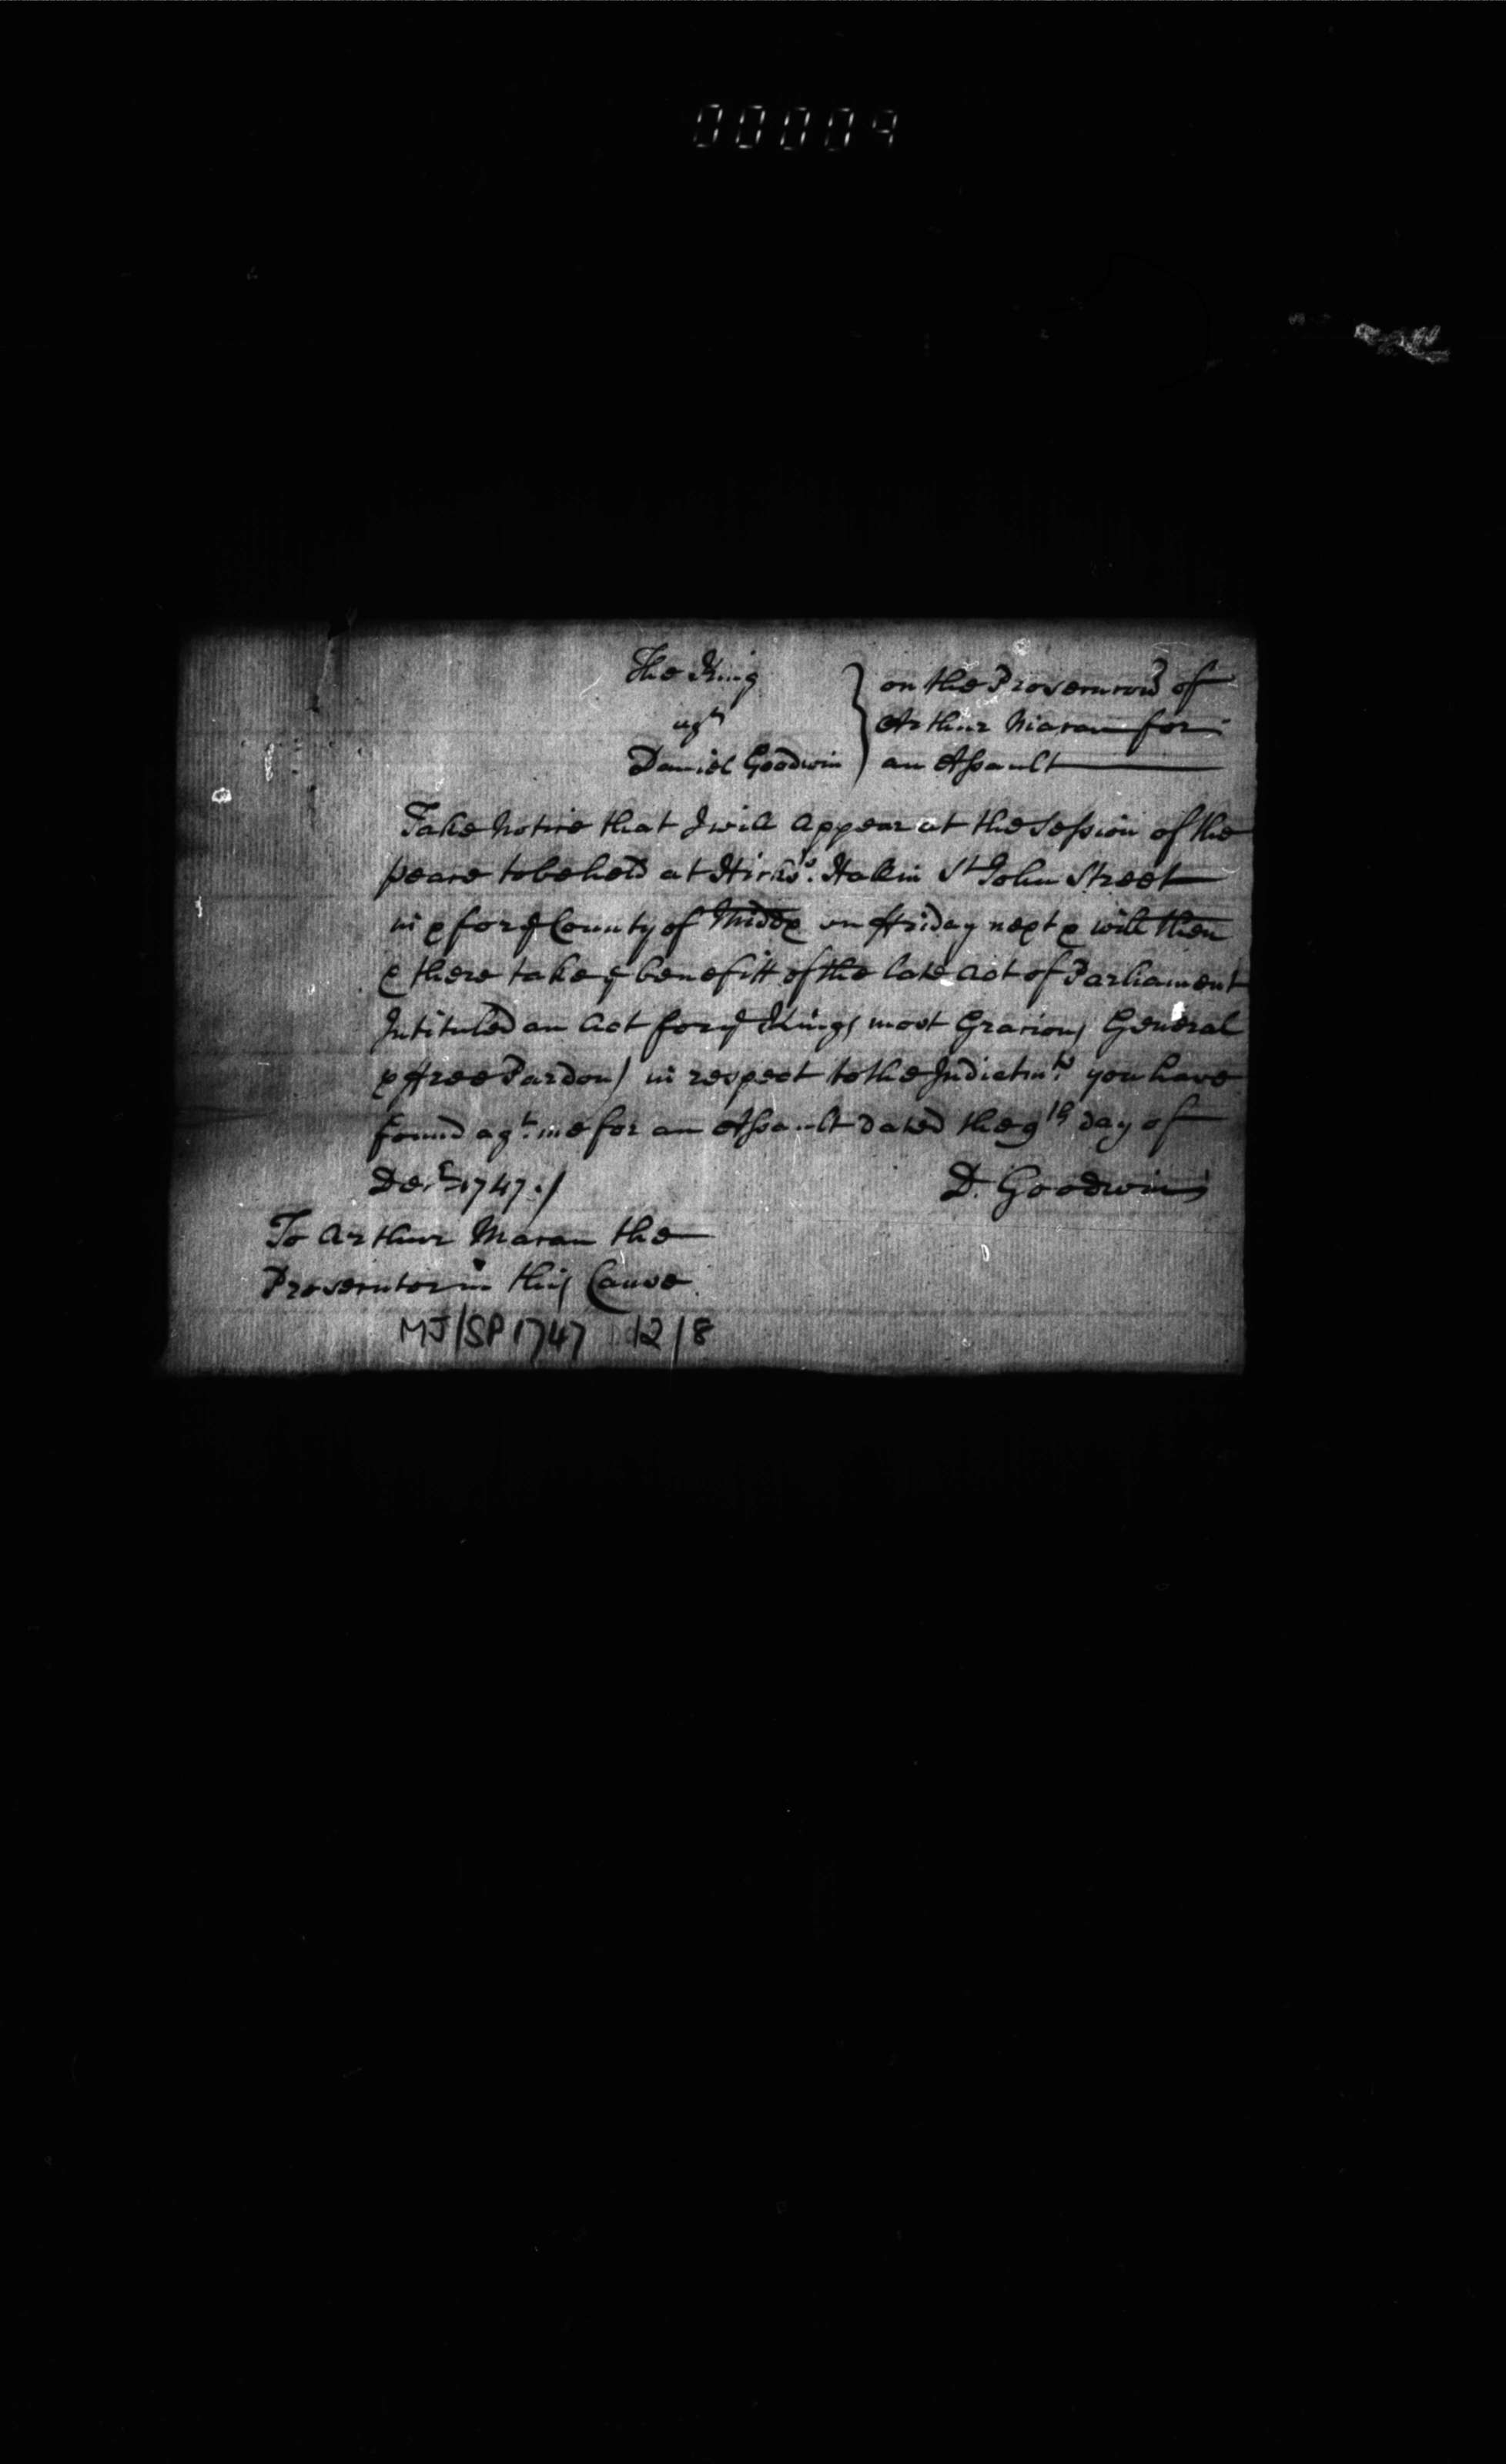 00009
The King
agt
Daniel Goodwin
} on the Prosecucon of
Arthur Maran for
an Assault
Take Notice that I will Appear at the Session of the
peace to be held at Hicks's. Hall in St John Street
in & for ye County of Middx on ffriday next & will then
& there take ye benefitt of the late Act of Parliament
Intituled an Act for ye Kings most Gracious General
& ffree Pardon) in respect to the Indictmts. you have
found agt. me for an Assault dated the 9th day of
Decr. 1747./
D. Goodwin
To Arthur Maran the
Prosecutor in this Cause
MJ/SP 1747 12/8